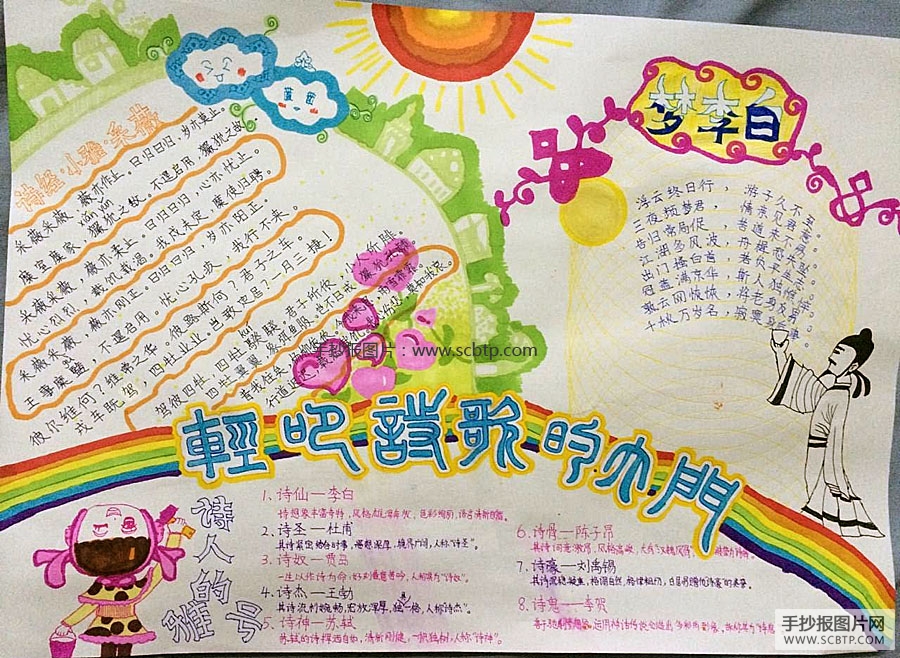 蓝图
诗经·小雅·采薇
采薇采薇，薇亦作止。曰归曰归，岁亦莫止。
xian yun
靡室靡家，玁狁之故。不遑启居，玁狁之故。
采薇采薇，薇亦柔止。曰归曰归，心亦忧止。
忧心烈烈，载饥载渴。我戍未定，靡使归聘。
采薇采薇，薇亦刚止。曰归曰归，岁亦阳止。
王事靡盬，不遑启居。忧心孔疚，我行不来。
彼尔维何？维常之华。彼路斯何？君子之车。
戎车既驾，四牡业业。岂敢定居？一月三捷！
驾彼四牡，四牡骙骙。君子所依，小人所腓。
四牡翼翼，象弭鱼服。岂不日戒
昔我往矣，杨柳依依。
行道迟迟，莫知我哀。
梦李白
浮云终日行，游子久不至。
三夜频梦君，情亲见君意。
告归常局促，苦道来不易。
江湖多风波，舟楫恐失坠。
出门搔白首，若负平生志。
冠盖满京华，斯人独憔悴。
孰云网恢恢，将老身反累。
千秋万岁名，寂寞身后事。
手抄报图片：www.scbtp.com
輕叩詩歌的大門
诗人的雅号
1. 诗仙—李白
诗想象丰富奇特，风格雄浑奔放，色彩绚丽，语言清新自然。
2. 诗圣—杜甫
其诗紧密结合时事，思想深厚，境界广阔，人称“诗圣”。
3. 诗奴—贾岛
一生以作诗为命，好刻意苦吟，人称其为“诗奴”。
4. 诗杰—王勃
其诗流利婉畅，宏放浑厚，独具一格，人称“诗杰”。
5. 诗神—苏轼
苏轼的诗挥洒自如，清新刚健，一代独树，人称“诗神”。
6. 诗骨—陈子昂
其诗词意激昂，风格高峻，大有“汉魏风骨”，
7. 诗豪—刘禹锡
其诗沉稳凝重，格调自然，格律粗切，
8. 诗鬼—李贺
手抄报图片网
WWW.SCBTP.COM